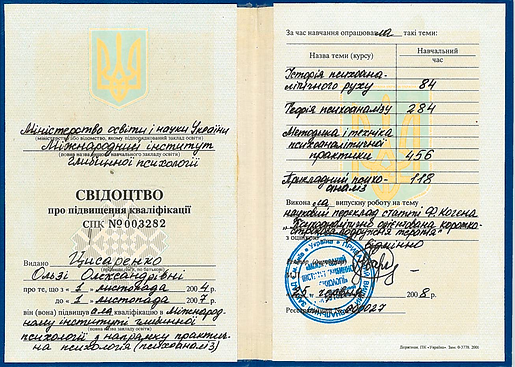 Міністерство освіти і науки України
(міністерство або відомство, якому підпорядкований заклад освіти)
Міжнародний інститут
(повна назва навчального закладу освіти)
глибинної психології
СВІДОЦТВО
про підвищення кваліфікації
СПК № 003282
Видано Цисаренко
(прізвище, ім'я, по батькові)
Ользі Олександрівні
про те, що з « 1 » листопада 2004 р.
до « 1 » листопада 2007 р.
він (вона) підвищувала кваліфікацію в Міжнарод-
ному інституті глибинної
(повна назва закладу освіти)
психології з напрямку практич-
на психологія (психоаналіз)
За час навчання опрацювала такі теми:
Назва теми (курсу)
Навчальний час
Історія психоана-
літичного руху 84
Теорія психоаналізу 284
Методика і техніка
психоаналітичної
практики 456
Прикладний психо-
аналіз 118
Виконала випускну роботу на тему
науковий переклад статті Ф. Когена
"Психоаналітично орієнтована коротко-
з оцінкою відмінно
« 25 » 2008 р.
Державна. ПК «Україна». Зам. 2001